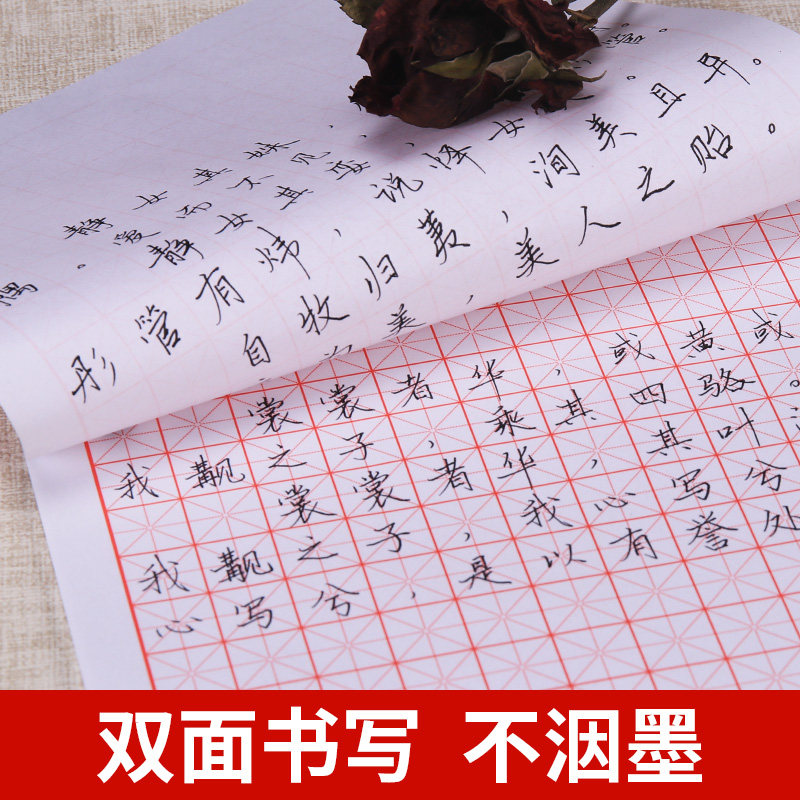 静女其姝，
隅。
爱而不见，
静女其娈，
彤管有炜，说怿女
自牧归荑，洵美且异。
美，美人之贻。
裳裳者华，或黄或
我觏之子，乘其四骆。
裳裳者华，其叶
我觏之子，我心写兮
心写兮，是以有誉处
双面书写 不洇墨